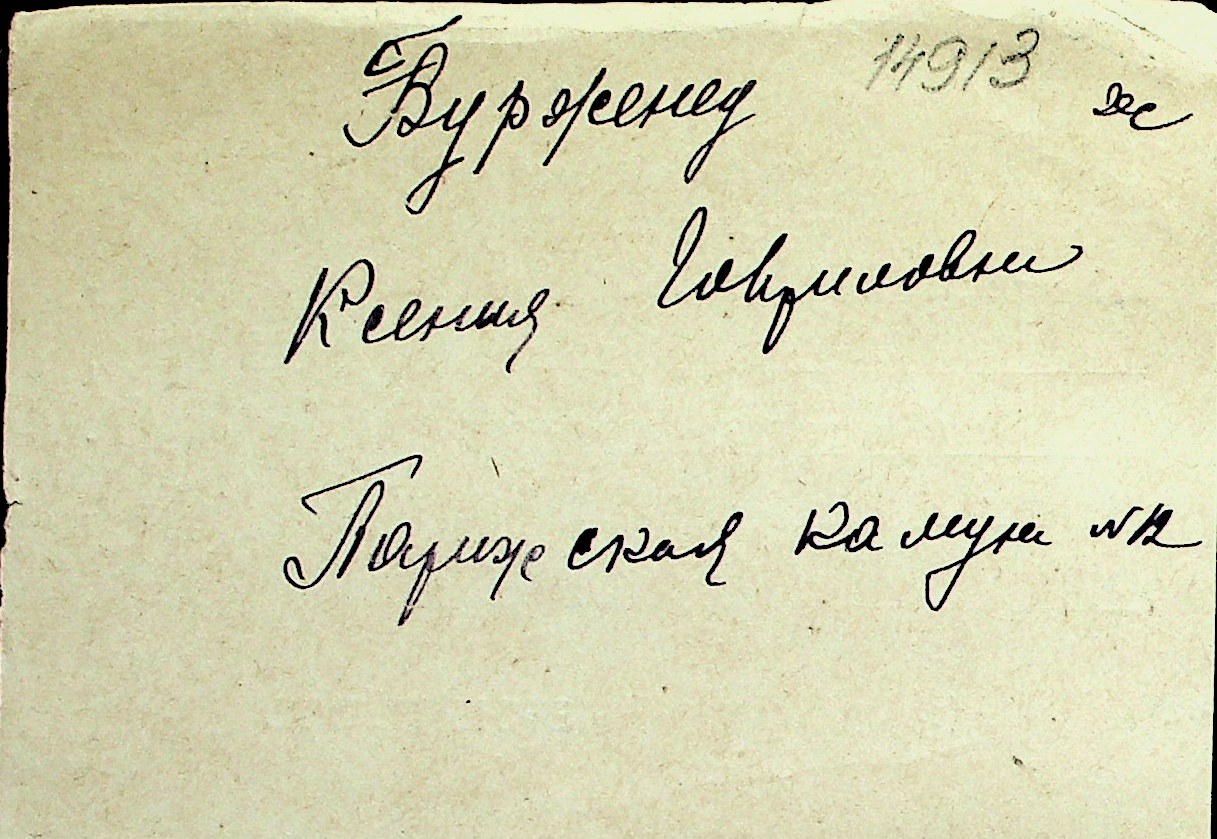 Бурженец 14913 ж
Ксения Гавриловни
Парижская камун №12